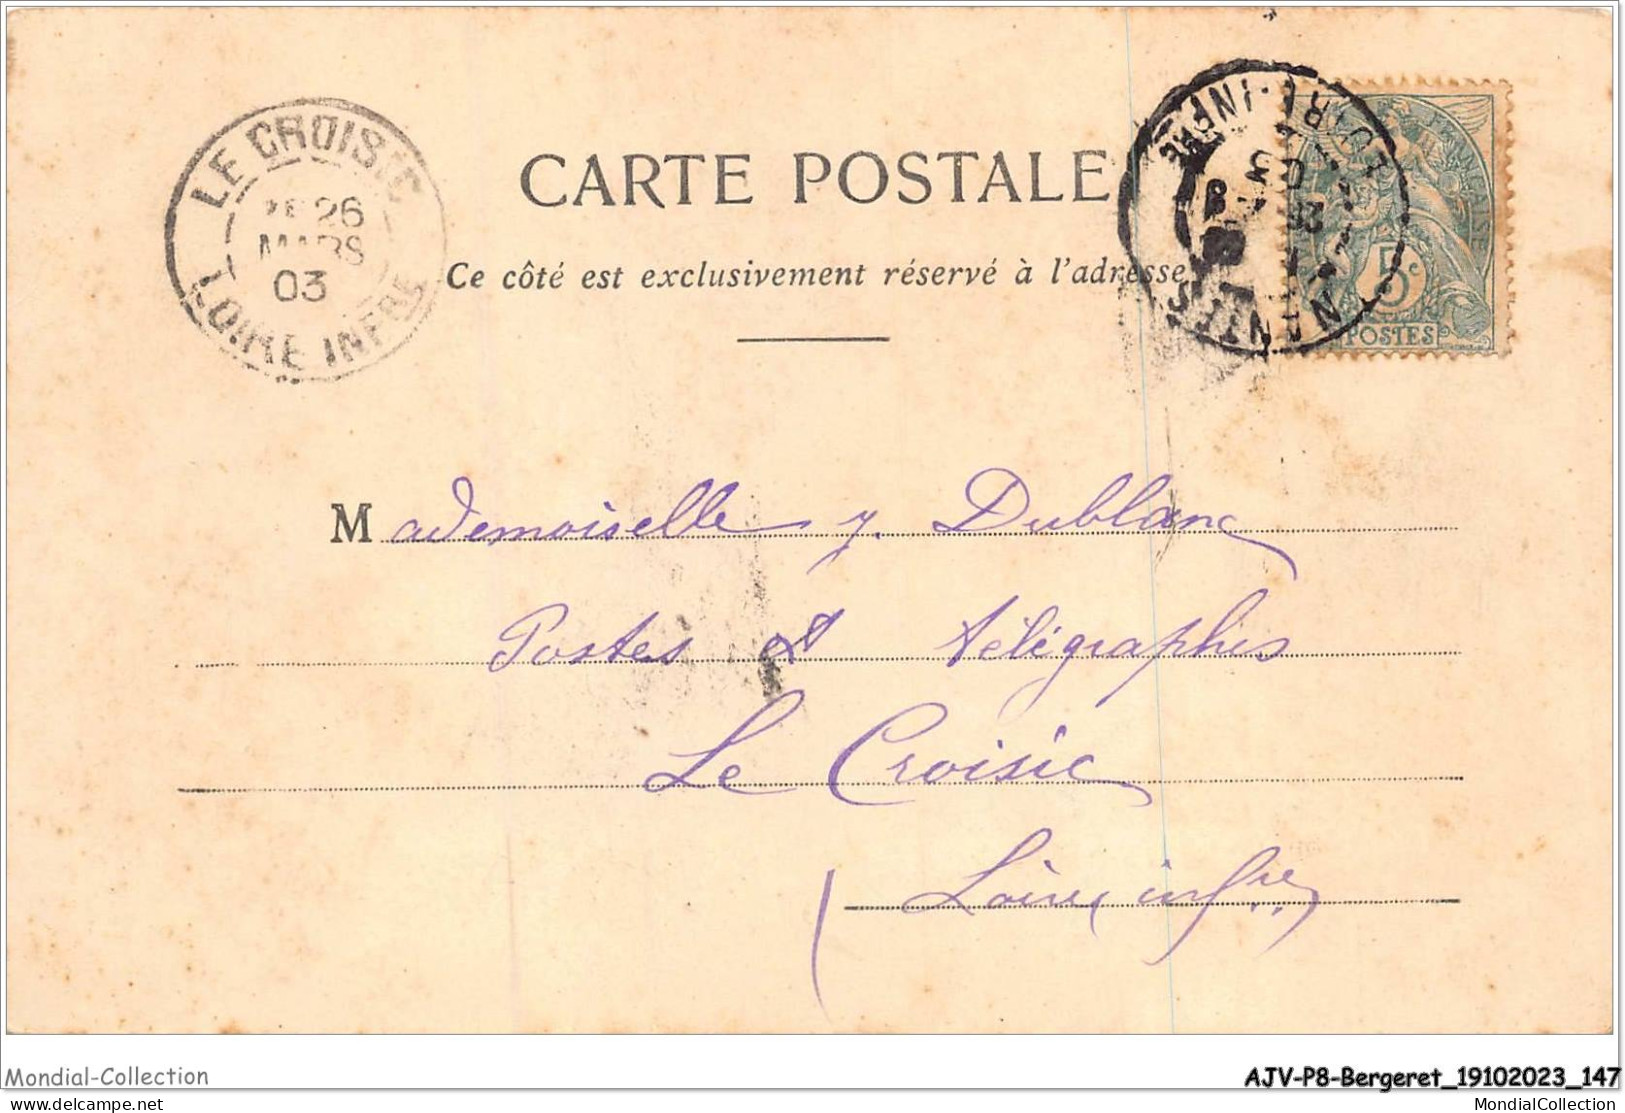 LE CROISIC
26
MARS
03
LOIRE INFRE
CARTE POSTALE
Ce côté est exclusivement réservé à l'adresse
NANTES
LOIRE-INFRE
03
5c
POSTES
Mademoiselle y. Dublanc
Postes & télégraphes
Le Croisic
(Loire infre)
Mondial-Collection
AJV-P8-Bergeret_19102023_147
www.delcampe.net
MondialCollection